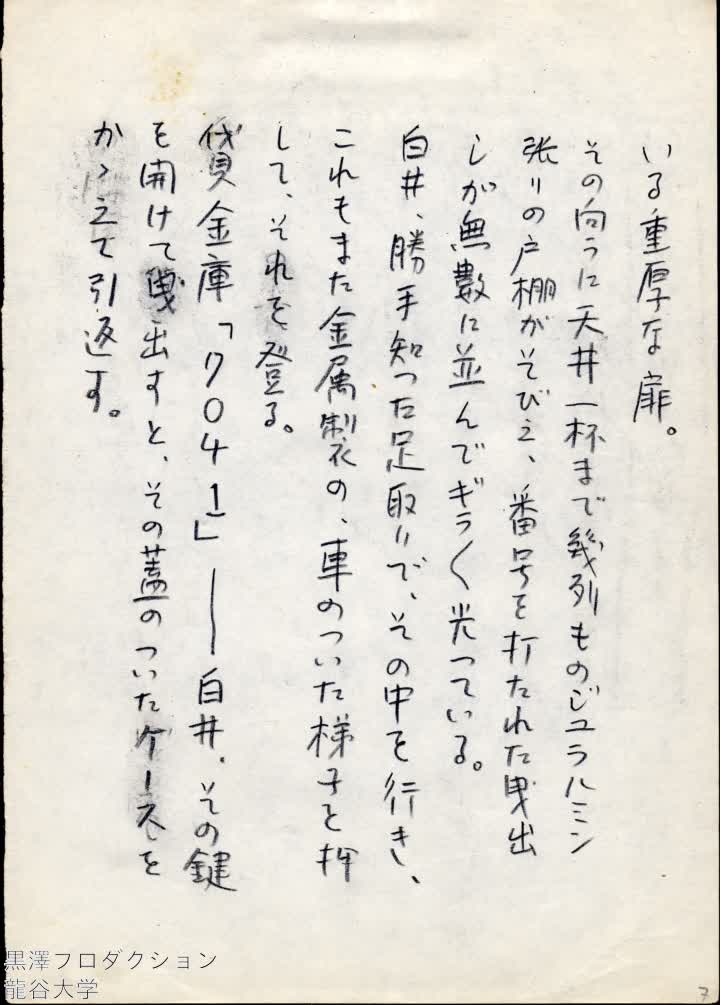 いる重厚な扉。
その向うに天井一杯まで幾列ものジュラルミン
張りの戸棚がそびえ、番号を打たれた曳出
しが無数に並んでギラ〱光っている。
白井、勝手知った足取りで、その中を行き、
これもまた金属製の、車のついた梯子を押
して、それを登る。
貸金庫「7041」――白井、その鍵
を開けて曳出すと、その蓋のついたケースを
かゝえて引返す。
黒澤プロダクション
龍谷大学
3